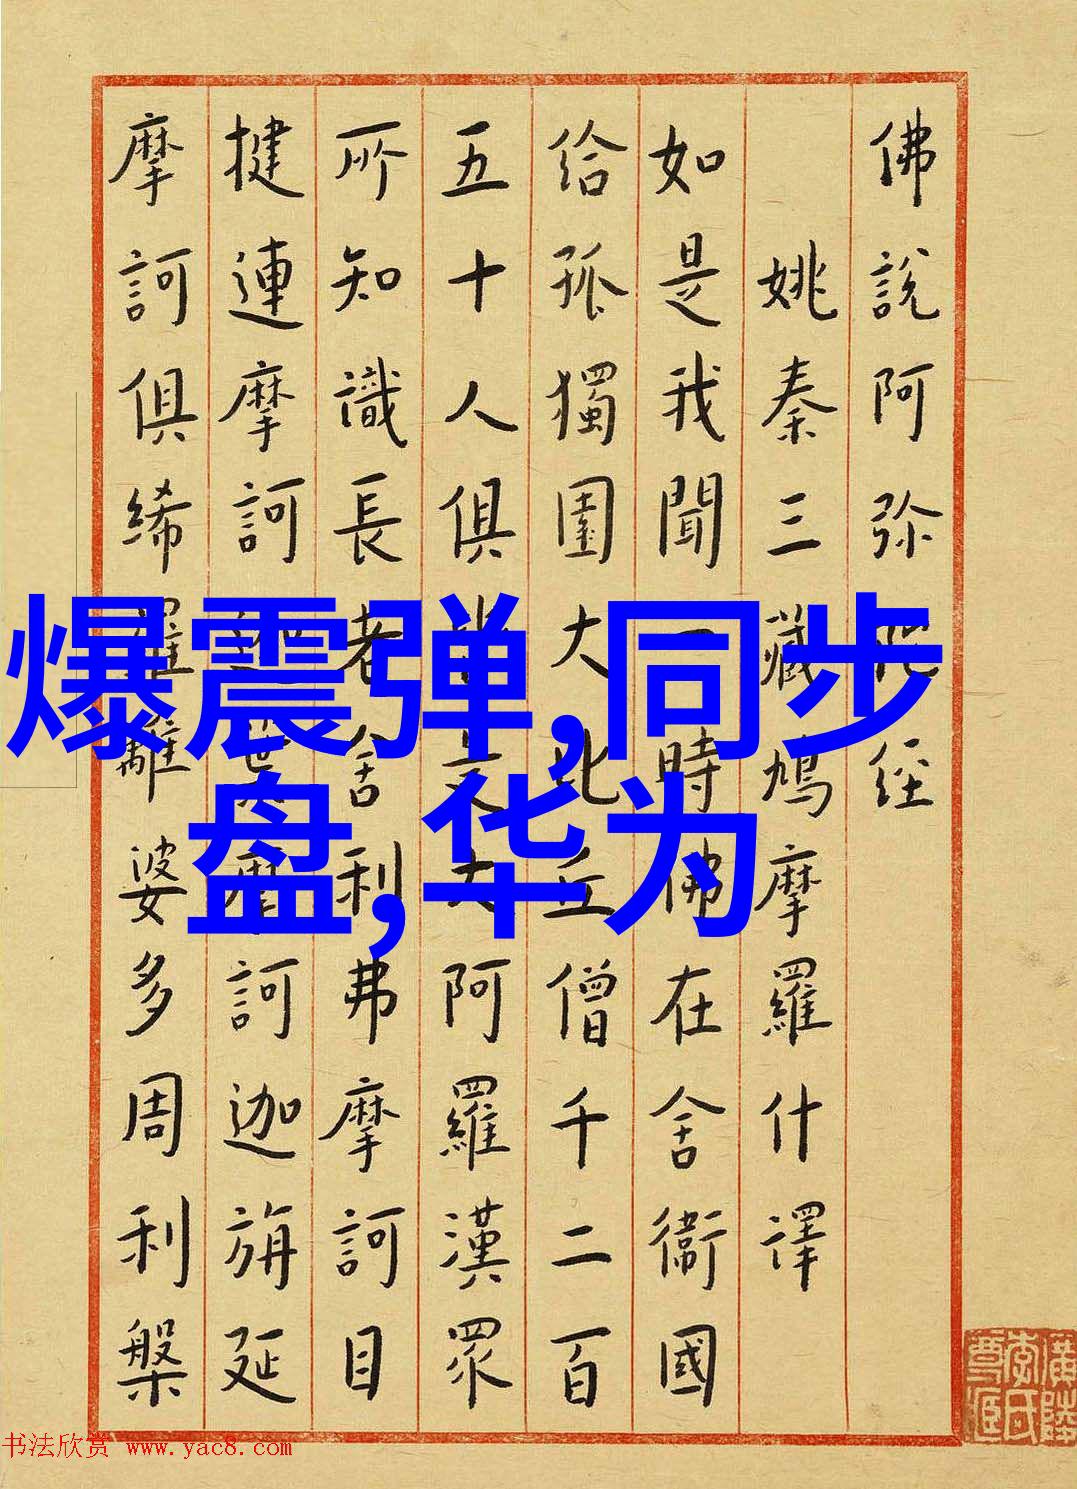 佛說阿弥陀经
姚秦三藏鳩摩羅什譯
如是我聞一時佛在舍衞國
給孤獨園大比丘僧千二百
五十人俱皆是大阿羅漢眾
所知識長老舍利弗摩訶目
揵連摩訶迦葉摩訶迦旃延
摩訶俱絺羅離婆多周利槃
爆震弹,同步
盘,华为
书法欣赏 www.yac8.com